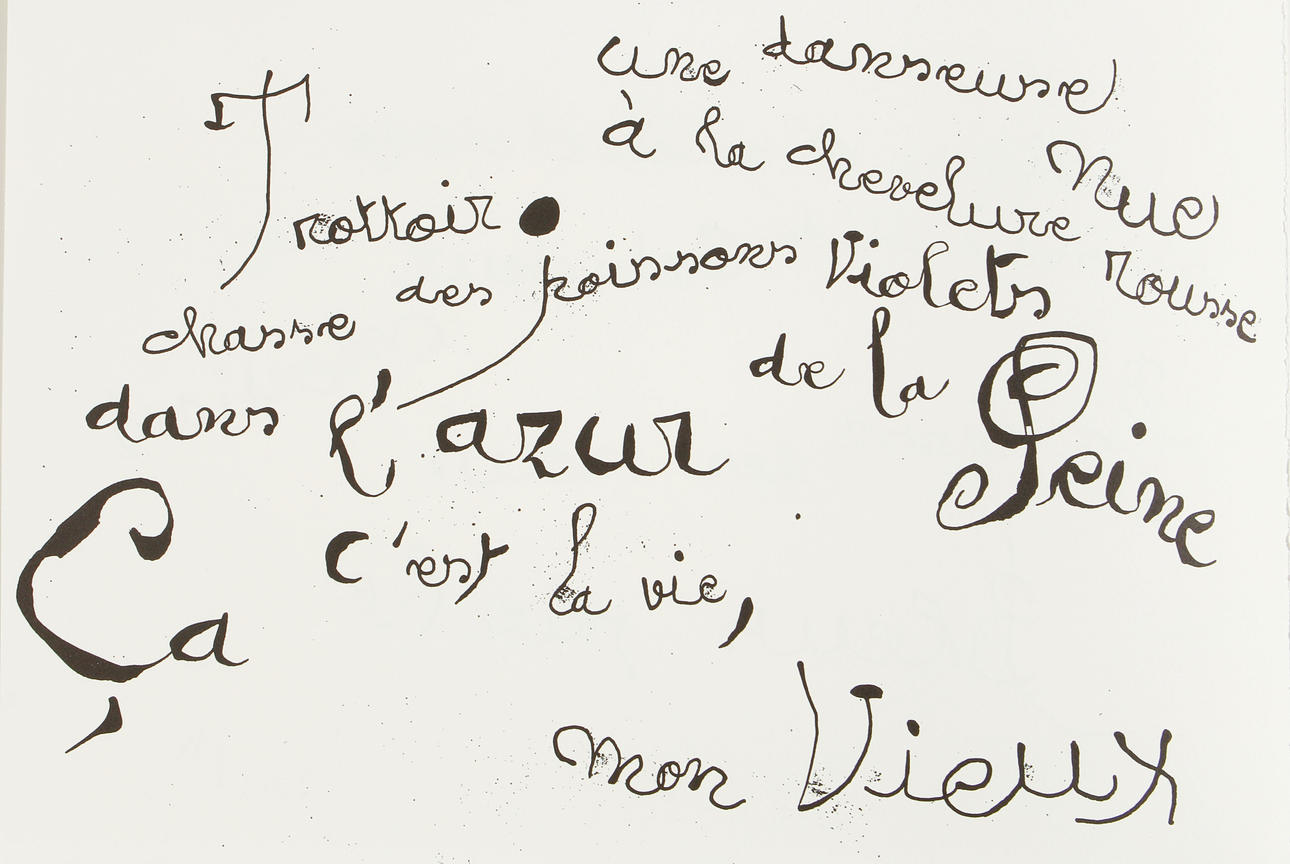 Trottoir.
une danseuse nue
à la chevelure rousse
chasse des poissons violets
dans l'azur de la Seine
Ça c'est la vie,
mon Vieux